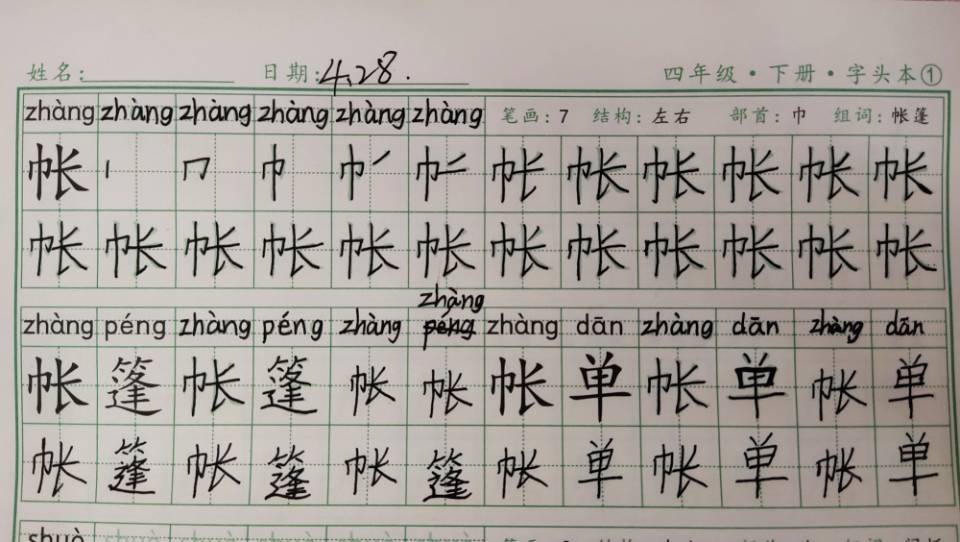 姓名: 日期:4.28. 四年级·下册·字头本①
zhàng zhàng zhàng zhàng zhàng zhàng 笔画:7 结构:左右 部首:巾 组词:帐篷
帐 丨 冂 巾 帐 帐 帐 帐 帐 帐
帐 帐 帐 帐 帐 帐 帐 帐 帐 帐 帐 帐
zhàng
zhàng péng zhàng péng zhàng péng zhàng dān zhàng dān zhàng dān
帐 篷 帐 篷 帐 帐 帐 单 帐 单 帐 单
帐 篷 帐 篷 帐 篷 帐 单 帐 单 帐 单
shuò shuò shuò